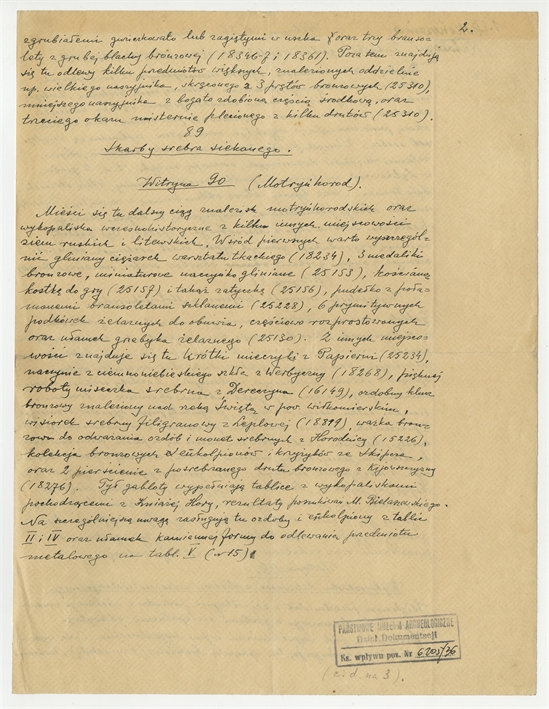 2.
zgrubiałemi gwiazdkowato lub zagiętymi w uszka oraz trzy branso-
lety z grubej blachy bronzowej (18346-7 i 18361). Poza tem znajdują
się tu odlewy kilku przedmiotów większych, znalezionych oddzielnie
np. wielkiego naszyjnika, skręconego z 3 prętów bronzowych (25310),
mniejszego naszyjnika z bogato zdobioną częścią środkową, oraz
trzeciego okazu misternie plecionego z kilku drutów (25310).
89
Skarby srebra siekanego.
Witryna 90 (Motryńhorod).
Mieści się tu dalszy ciąg znalezisk motryńhorodskich oraz
wykopaliska wczesnohistoryczne z kilku innych miejscowości
ziem ruskich i litewskich. Wśród pierwszych warto wyszczegól-
nić gliniany ciężarek warsztatu tkackiego (18234), 3 medaliki
bronzowe, miniaturowe naczyńko gliniane (25153), kościaną
kostkę do gry (25157) i takąż zatyczkę (25156), pudełko z poła-
manemi bransoletami szklanemi (25228), 6 prymitywnych
podkówek żelaznych do obuwia, częściowo rozprostowanych
oraz ułamek grzebyka żelaznego (25130). Z innych miejsco-
wości znajduje się tu krótki mieczyk z Papierni (25234),
naczynie z ciemnoniebieskiego szkła z Werbyczny (18268), pięknej
roboty miseczka srebrna z Dereczyna (16149), ozdobny klucz
bronzowy znaleziony nad rzeką Świętą w pow. wiłkomierskim,
wisiorek srebrny filigranowy z Łeplowej (18899), ważka bron-
zowa do odważania ozdób i monet srebrnych z Horodnicy (15226),
kolekcja bronzowych enkolpionów i krzyżyków ze
oraz 2 pierścienie z posrebrzanego drutu bronzowego z
(18276). Tył gabloty wypełniają tablice z wykopaliskami
pochodzącemi z Kniażej Hory, rezultaty poszukiwań M. Bielaszewskiego.
Na szczególniejszą uwagę zasługują tu ozdoby i enkolpiony z tablic
II i IV oraz ułamek kamiennej formy do odlewania przedmiotu
metalowego na tabl. V (nr 15).
PAŃSTWOWE MUZEUM ARCHEOLOGICZNE
Dział Dokumentacji
Ks. wpływu poz. Nr 6205/76
(c.d. na 3).